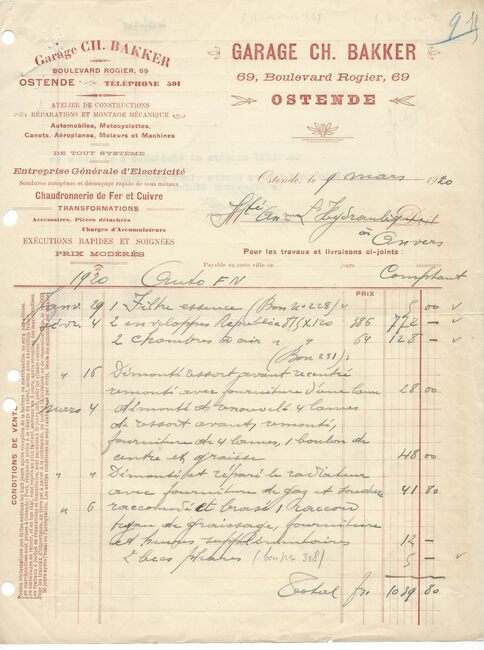 Garage CH. BAKKER
BOULEVARD ROGIER, 69
OSTENDE TÉLÉPHONE 501
ATELIER DE CONSTRUCTIONS
RÉPARATIONS ET MONTAGE MÉCANIQUE
Automobiles, Motocyclettes,
Canots, Aéroplanes, Moteurs et Machines
DE TOUT SYSTÈME
Entreprise Générale d'Electricité
Soudures autogènes et découpage rapide de tous métaux
Chaudronnerie de Fer et Cuivre
TRANSFORMATIONS
Accessoires, Pièces détachées
Charges d'Accumulateurs
EXÉCUTIONS RAPIDES ET SOIGNÉES
PRIX MODÉRÉS
GARAGE CH. BAKKER
69, Boulevard Rogier, 69
OSTENDE
Ostende, le 9 mars 1920
Sté Anme L'Hydraulique Doit
à Anvers
Pour les travaux et livraisons ci-joints :
Payable en cette ville en jours Comptant
1920 Auto FN PRIX
Janv 29 1 Filtre essence (Bon No 228) 5 00
févr 4 2 enveloppes Republic 815x120 386 772 —
2 chambres à air " " 64 128 —
(Bon 231)
" 16 Démonté ressort avant recentré
remonté avec fourniture d'une lame 28 00
Mars 4 démonté et renouvelé 4 lames
de ressort avant, remonté,
fourniture de 4 lames, 1 boulon de
centre et graisse 48 00
" " Démonté et réparé le radiateur
avec fourniture de gaz et soudure 41 80
" 6 raccourci et brasé 1 raccord
tuyau de graissage, fourniture
et heures supplémentaires 12 —
2 becs phares (bon No 308) 5 —
Total fr. 1039 80
CONDITIONS DE VENTE